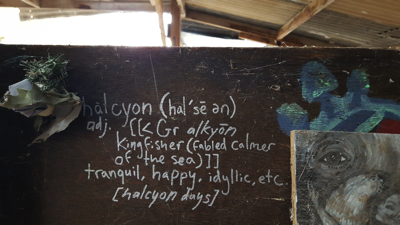 halcyon (hal'sē ən)
adj. [[< Gr alkyōn
kingfisher (fabled calmer
of the sea)]]
tranquil, happy, idyllic, etc.
[halcyon days]